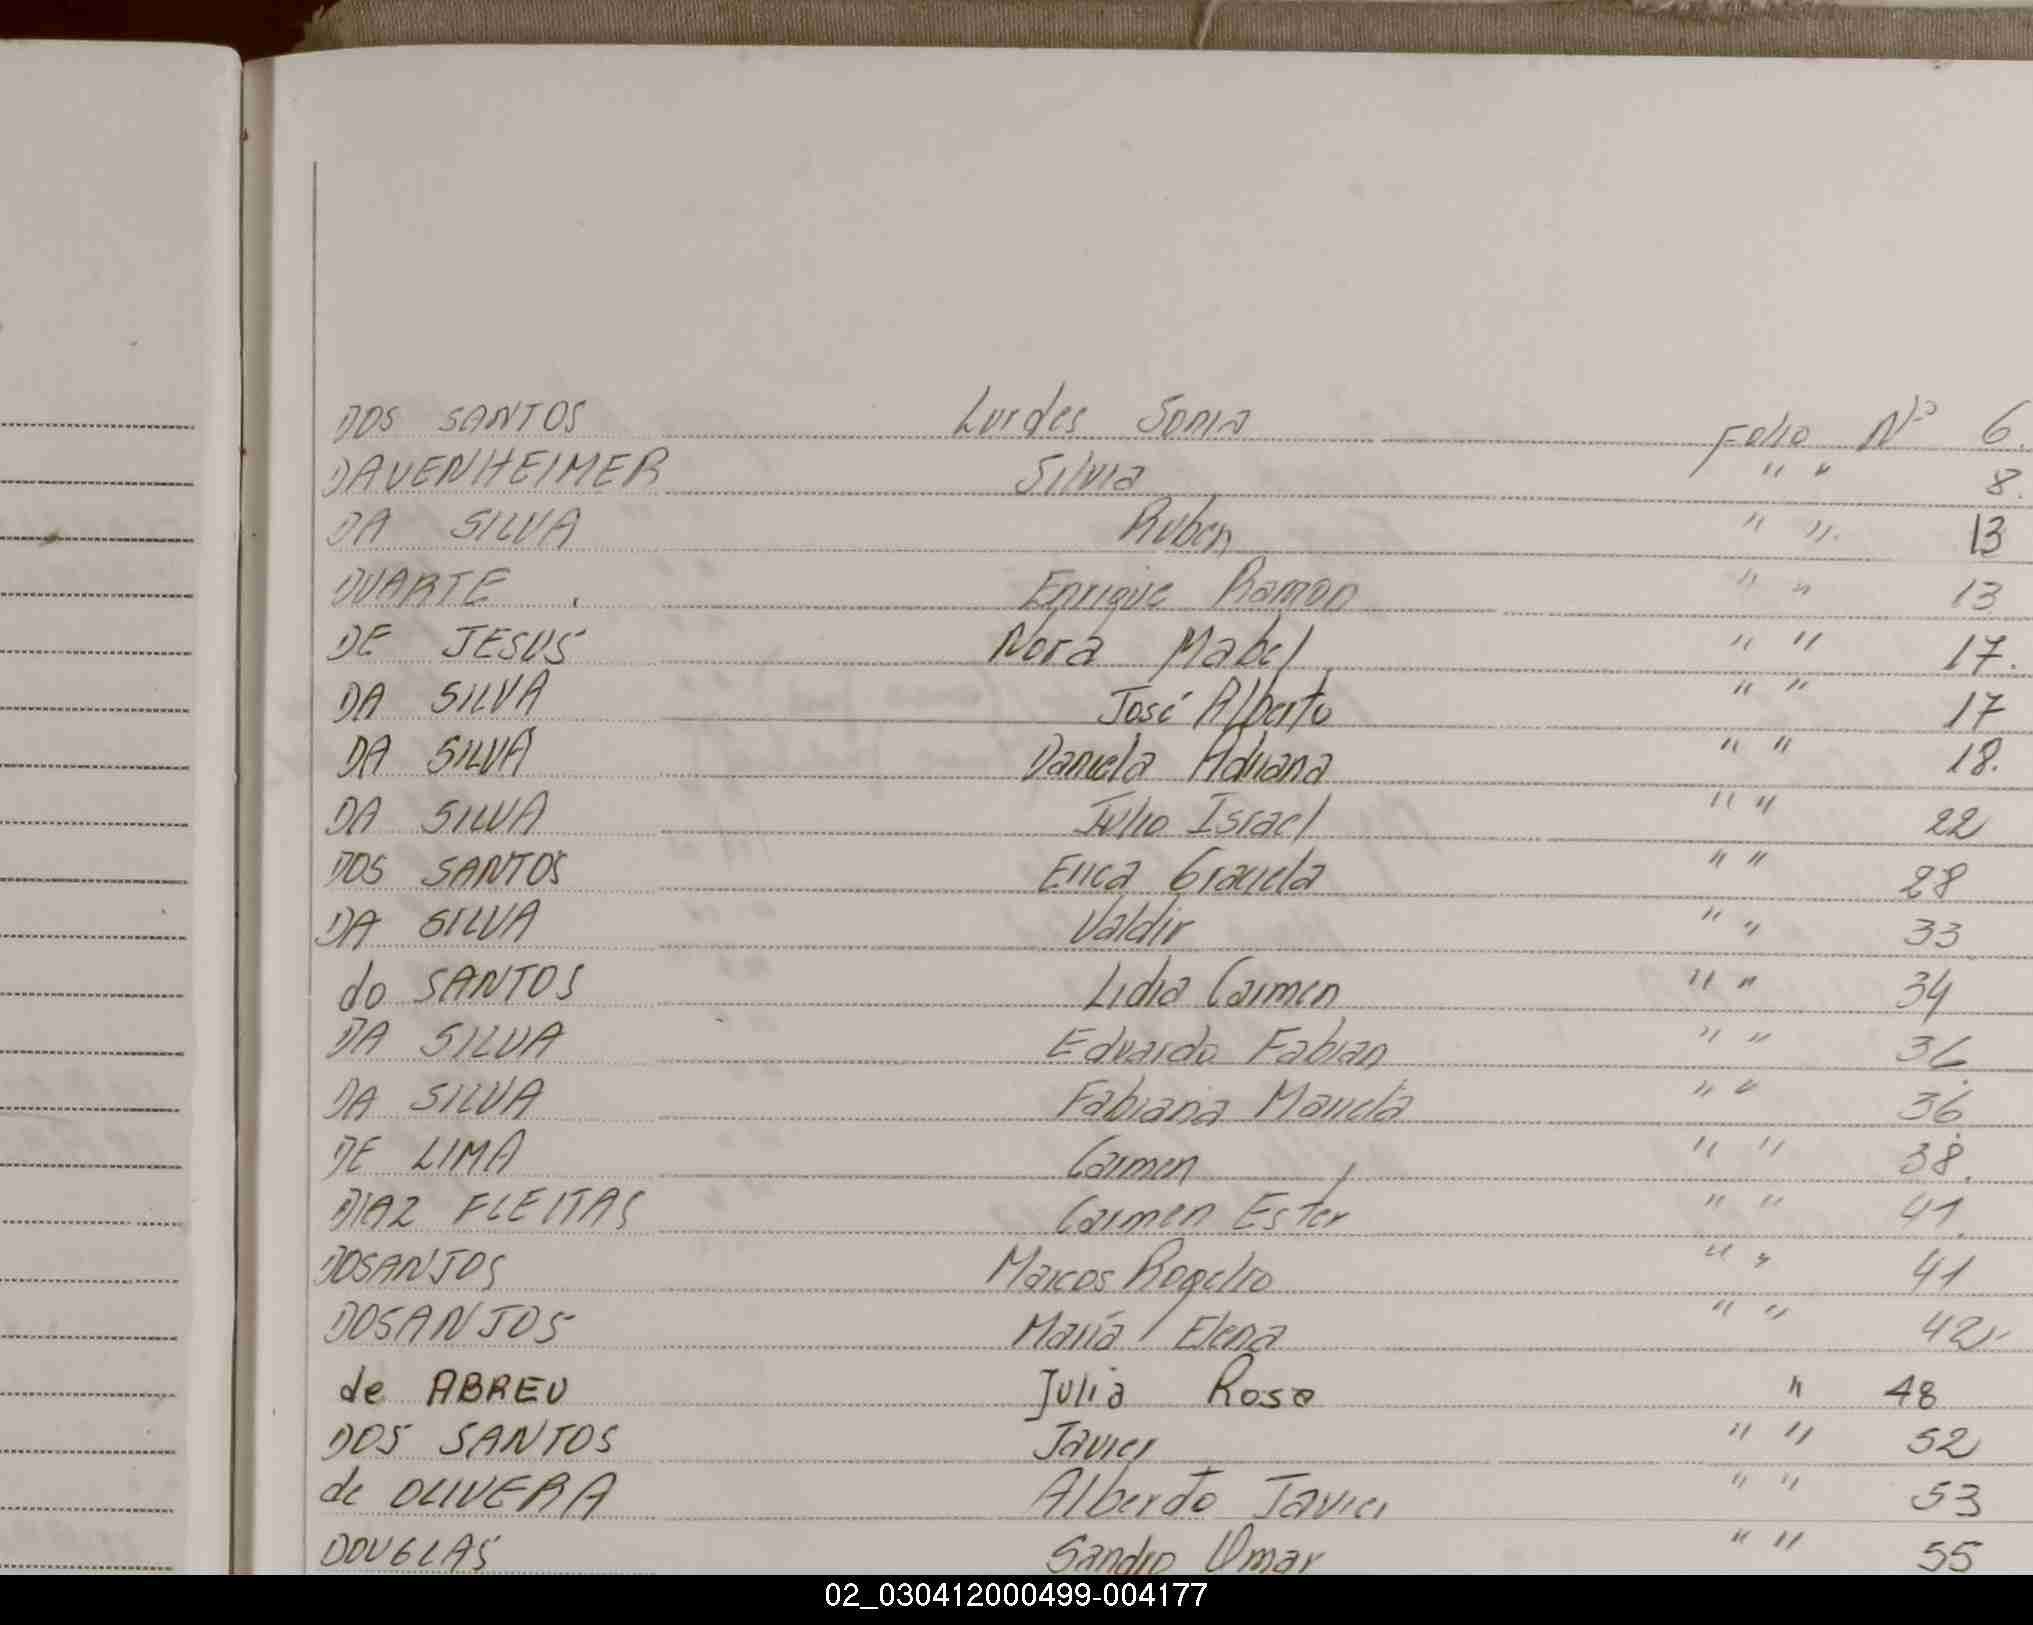 DOS SANTOS Lurdes Sonia Folio Nº 6.
DAVENHEIMER Silvia " " 8.
DA SILVA Ruben " ". 13
DUARTE . Enrique Ramon " " 13
DE JESUS Nora Mabel " " 17.
DA SILVA José Alberto " " 17
DA SILVA Daniela Adriana " " 18.
DA SILVA Julio Israel " " 22
DOS SANTOS Erica Graciela " " 28
DA SILVA Valdir " " 33
do SANTOS Lidia Carmen " " 34
DA SILVA Eduardo Fabian " " 36.
DA SILVA Fabiana Mariela " " 36
DE LIMA Carmen " " 38.
DIAZ FLEITAS Carmen Ester " " 41.
DOSANTOS Marcos Rogelio " " 41
DOSANTOS María Elena " " 42
de ABREU Julia Rosa " 48
DOS SANTOS Javier " " 52
de OLIVERA Alberto Javier " " 53
DOUGLAS Sandro Omar " " 55
02_030412000499-004177